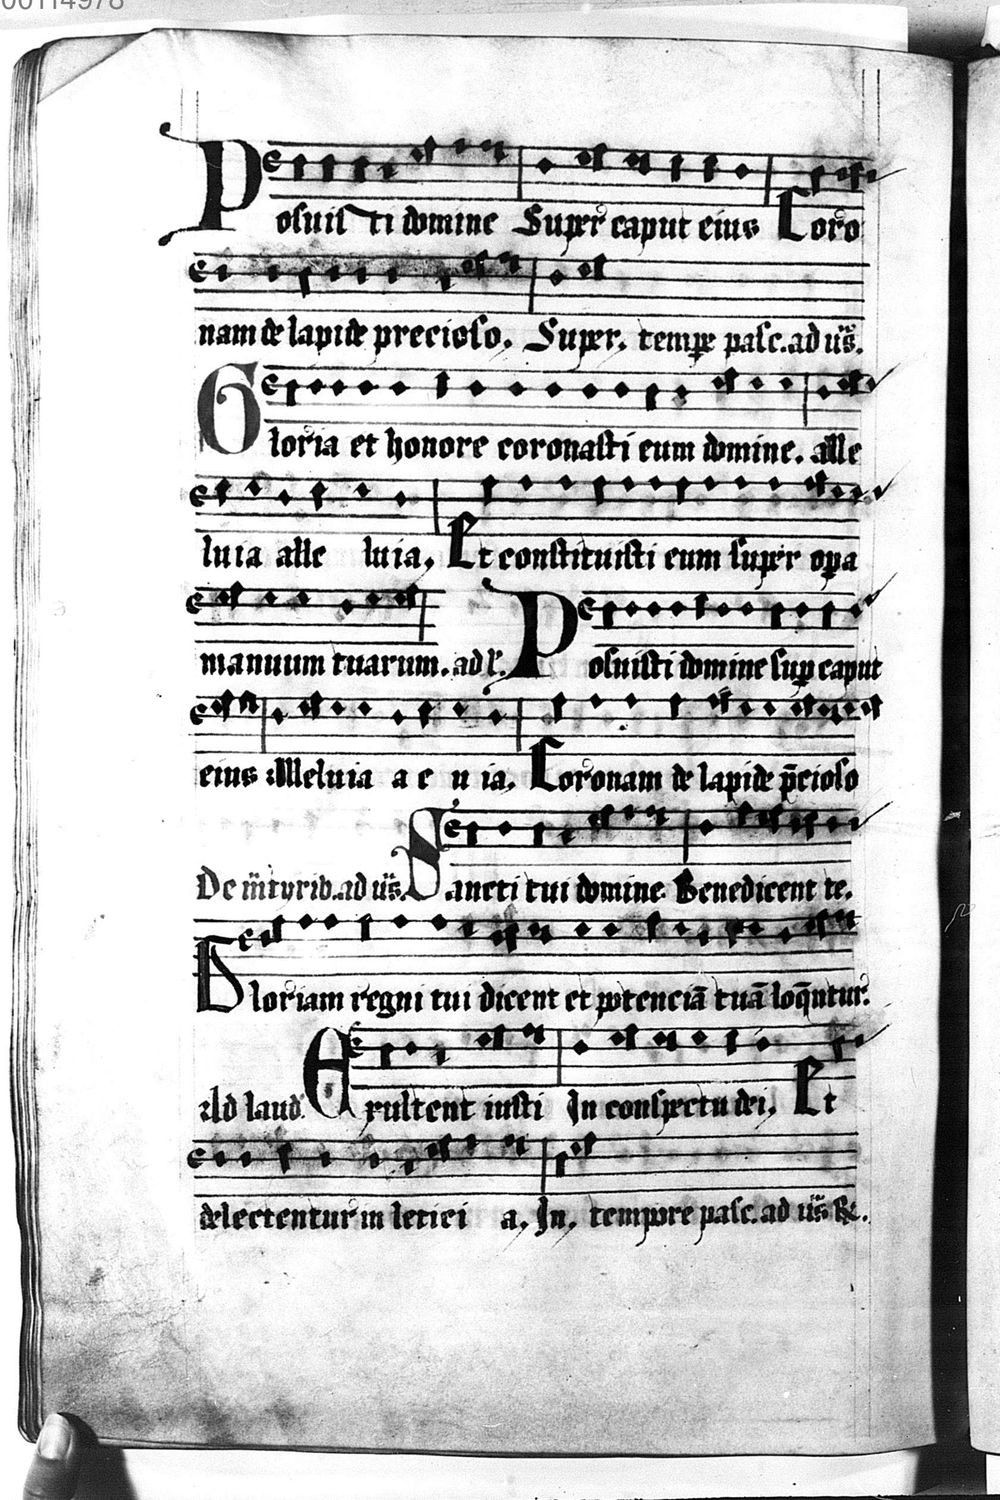 00114978
Posuisti domine Super caput eius Coro
nam de lapide precioso. Super. tempe pasc. ad us̄.
Gloria et honore coronasti eum domine. alle
luia alle luia. Et constituisti eum super opa
manuum tuarum. ad l. Posuisti domine sup caput
eius Alleluia a e u ia. Coronam de lapide p̄cioso
De m̄tyrib. ad us̄. Sancti tui domine Benedicent te.
Gloriam regni tui dicent et potenciā tuā loq̄ntur.
Ad laud. Exultent iusti In conspectu dei. Et
delectentur in leticia. In. tempore pasc. ad us̄ &c.